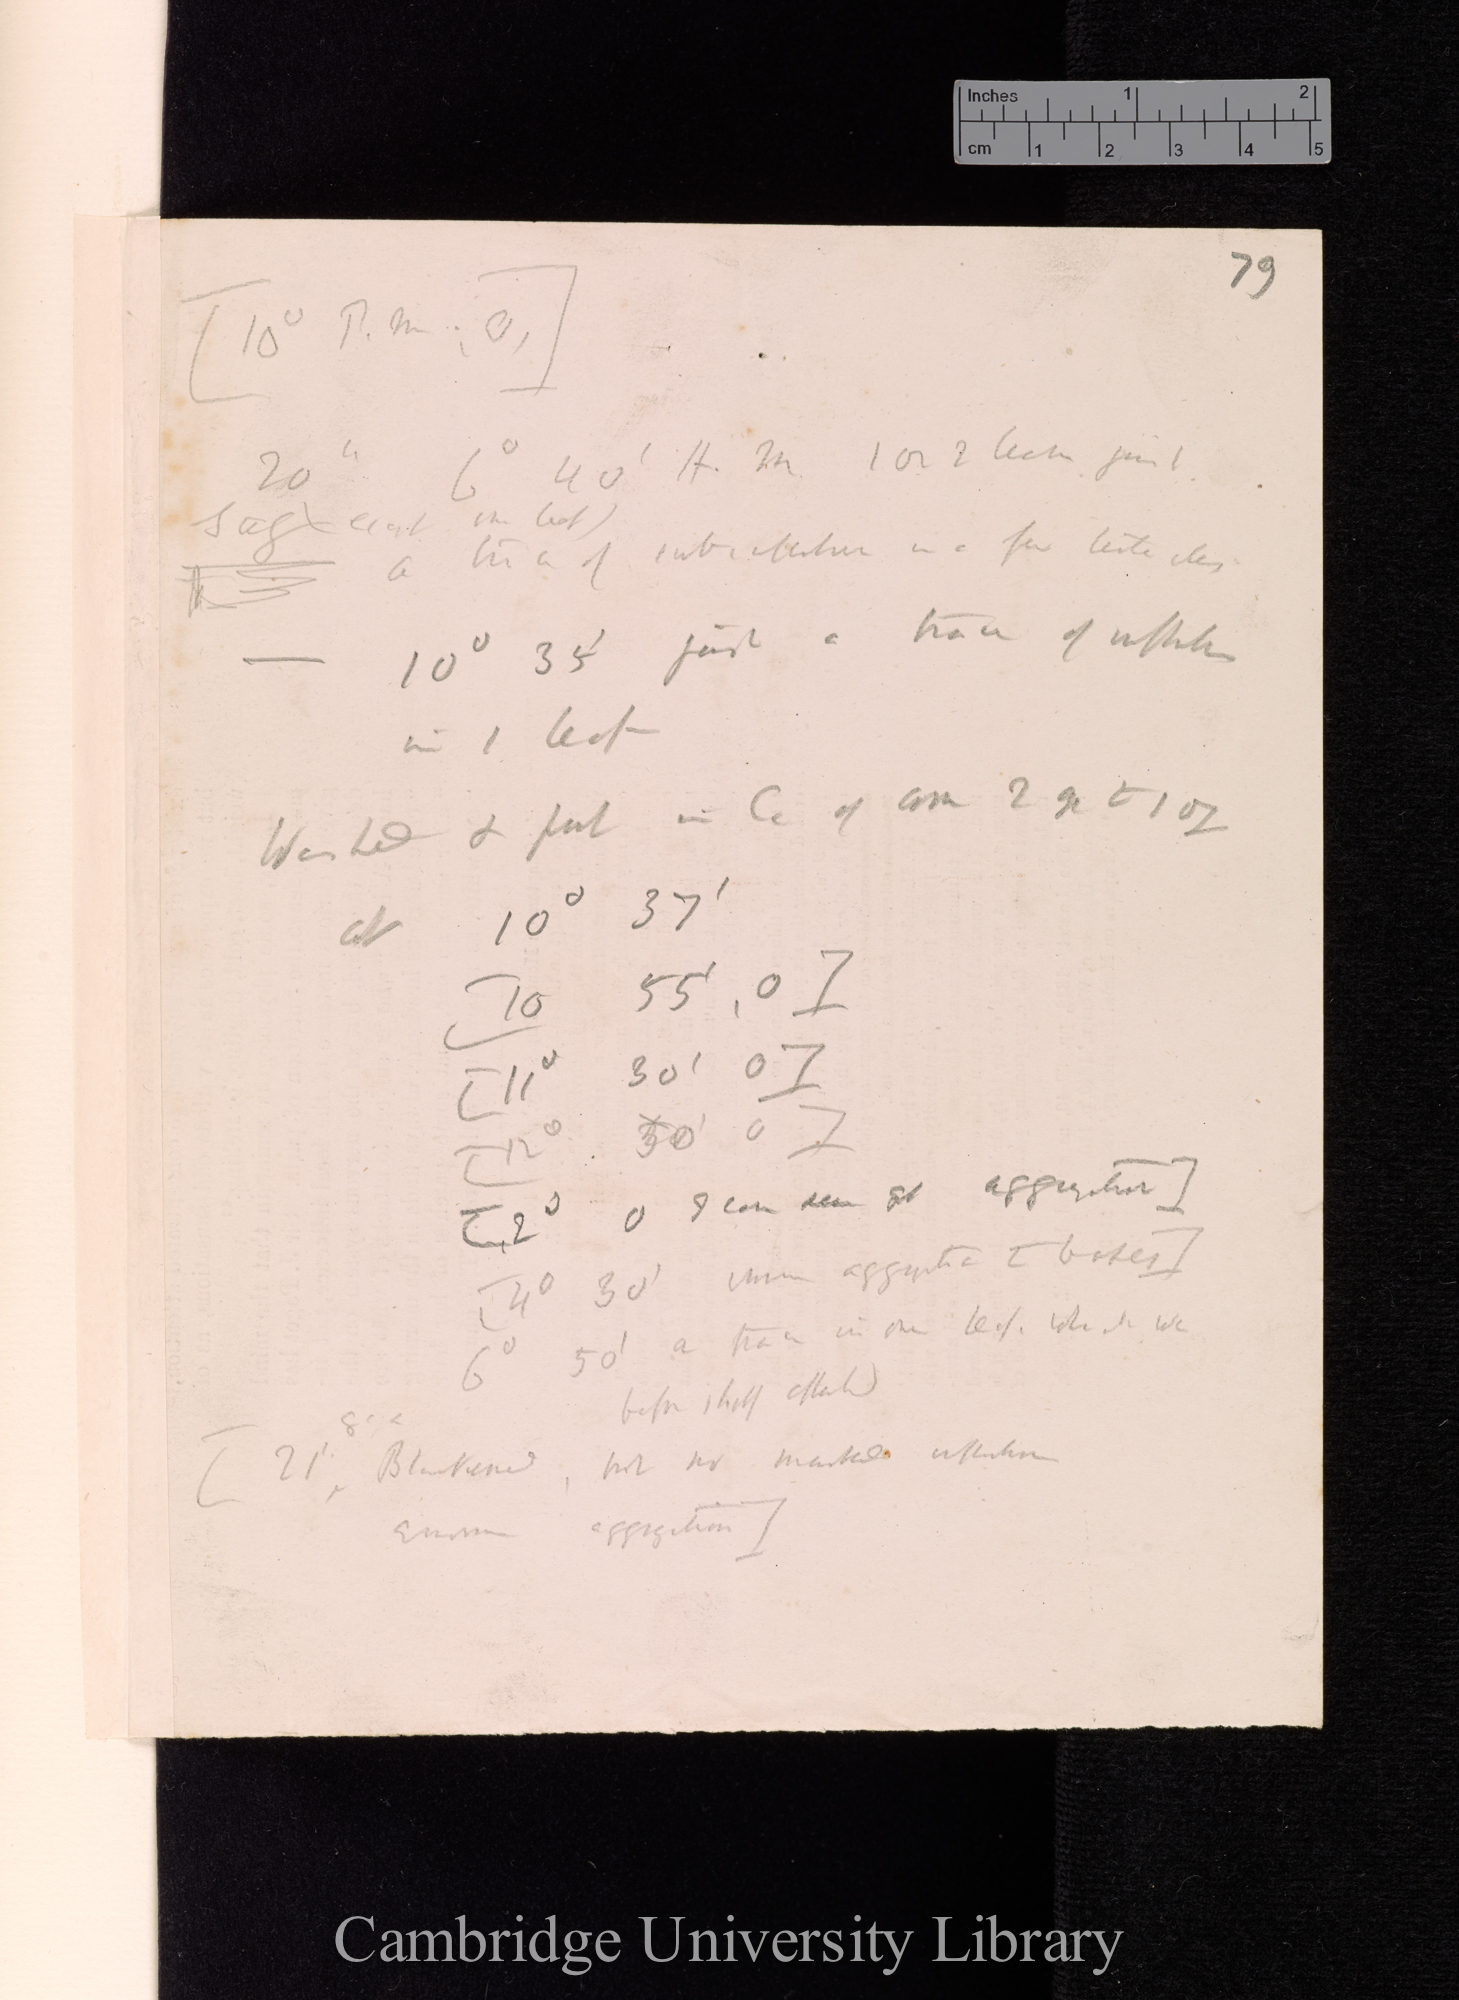 Inches 1 2
cm 1 2 3 4 5
79
[10° P.m. ; 0,]
20" 6° 40' A. m 1 or 2 leaves just
(except one leaf)
a trace of subinflection in a few tentacles
— 10° 35' just a trace of inflection
in 1 leaf
Washed & put in C. of Am 2 gr to 1 oz
at 10° 37'
[10 55', 0]
[11° 30' 0]
[12° 0]
[2° 0 I can see aggregation]
[4° 30' aggregation bases]
6° 50' a trace in one leaf. which was
before slightly affected
[21' Blackened, but no marked inflection
aggregation]
Cambridge University Library